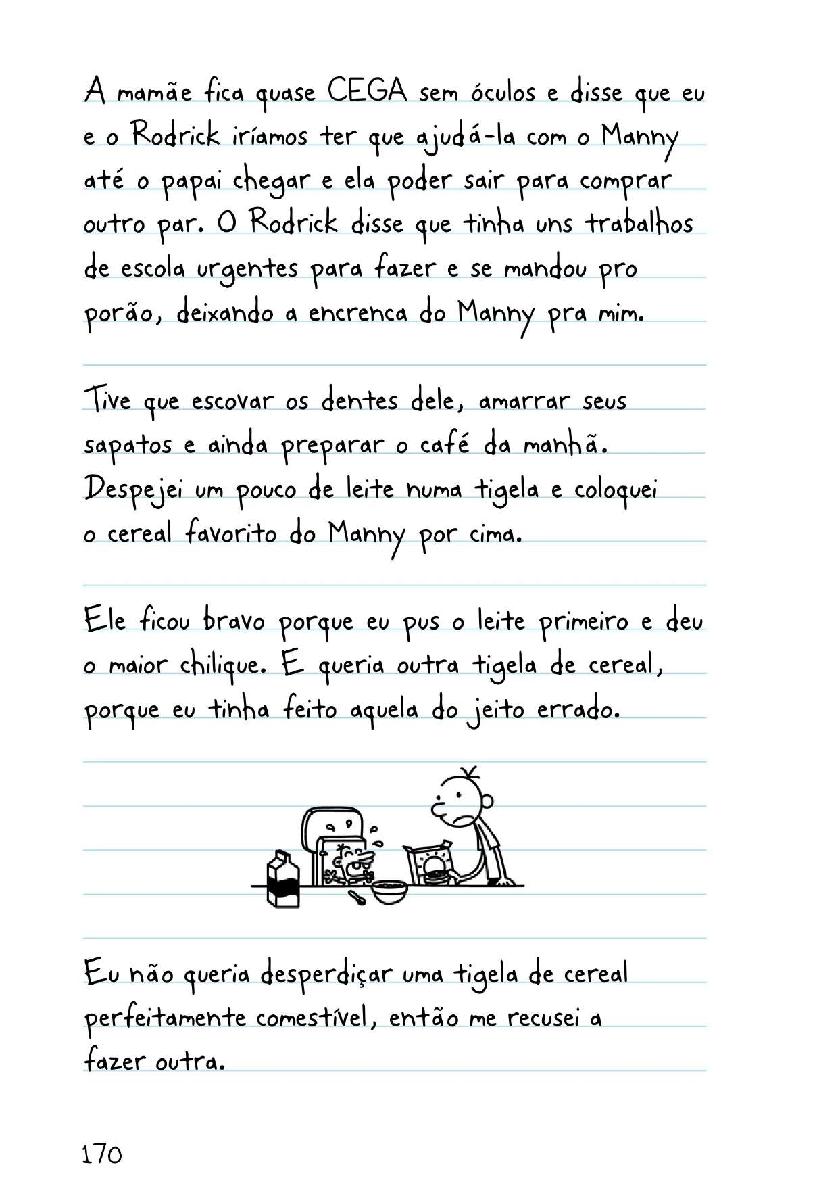 A mamãe fica quase CEGA sem óculos e disse que eu
e o Rodrick iríamos ter que ajudá-la com o Manny
até o papai chegar e ela poder sair para comprar
outro par. O Rodrick disse que tinha uns trabalhos
de escola urgentes para fazer e se mandou pro
porão, deixando a encrenca do Manny pra mim.
Tive que escovar os dentes dele, amarrar seus
sapatos e ainda preparar o café da manhã.
Despejei um pouco de leite numa tigela e coloquei
o cereal favorito do Manny por cima.
Ele ficou bravo porque eu pus o leite primeiro e deu
o maior chilique. E queria outra tigela de cereal,
porque eu tinha feito aquela do jeito errado.
Eu não queria desperdiçar uma tigela de cereal
perfeitamente comestível, então me recusei a
fazer outra.
170